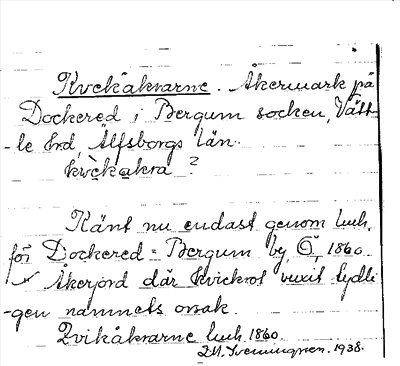 Kvekåkrarne. Åkermark på
Dockered i Bergum socken, Vätt-
-le hrd, Älfsborgs län.
kvèkakra ?
Känt nu endast genom luh,
för Dockered = Bergum by, Ö, 1860.
Åkerjord där kvickrot vuxit tydli
-gen namnets orsak.
Zvikåkrarne luh. 1860.
1938.